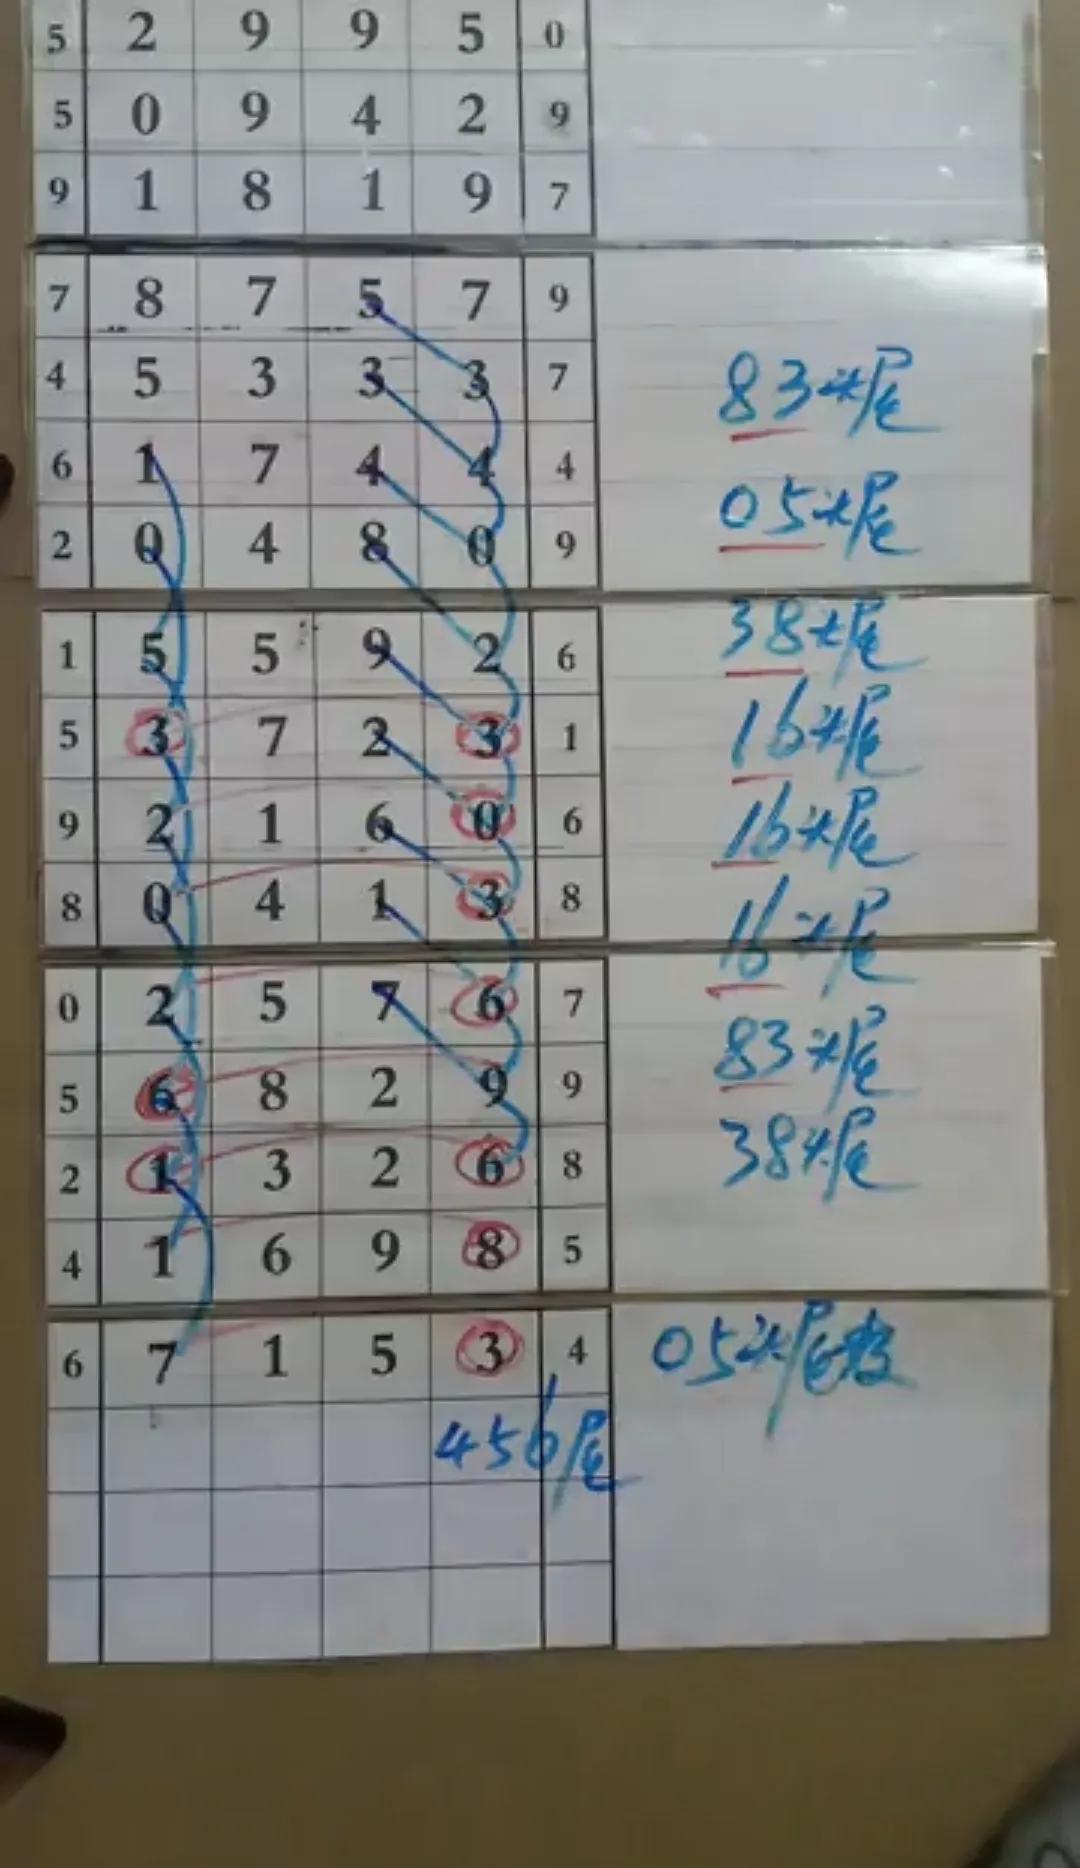 5 2 9 9 5 0
5 0 9 4 2 9
9 1 8 1 9 7
7 8 7 5 7 9
4 5 3 3 3 7 83头尾
6 1 7 4 4 4
2 0 4 8 0 9 05头尾
1 5 5 9 2 6 38头尾
5 3 7 2 3 1 16头尾
9 2 1 6 0 6 16头尾
8 0 4 1 3 8 16头尾
0 2 5 7 6 7
5 6 8 2 9 9 83头尾
2 1 3 2 6 8 38头尾
4 1 6 9 8 5
6 7 1 5 3 4 05头尾
456尾